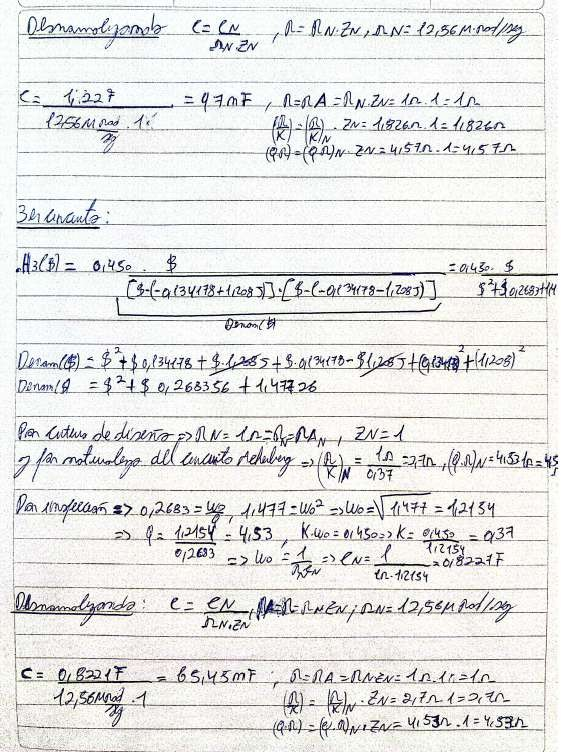 Desnormalizando C = CN / ΩN·ZN , R = RN·ZN , ΩN = 12,56 M rad/seg
C = 1,22F / 12,56 M rad/seg · 1 = 97 nF , R = RA = RN·ZN = 1Ω·1 = 1Ω
(R/K) = (R/K)N · ZN = 1,826Ω·1 = 1,826Ω
(Q·R) = (Q·R)N·ZN = 4,57Ω·1 = 4,57Ω
3er circuito:
H3($) = 0,450 · $ / [$-(-0,134178+1,208J)]·[$-(-0,134178-1,208J)] = 0,450·$ / $²+$0,2683+1,4
Denom($)
Denom($) = $² + $0,134178 + $·1,208J + $·0,134178 - $1,208J + (0,13417)² + (1,208)²
Denom($ = $² + $0,268356 + 1,47726
Por criterio de diseño => RN = 1Ω = RN = RAN , ZN = 1
y por naturaleza del circuito => (R/K)N = 1Ω / 0,37 = 2,7Ω , (Q·R)N = 4,53·1Ω = 4,5
Por inspección => 0,2683 = wo/q , 1,477 = wo² => wo = √1,477 = 1,2154
=> q = 1,2154 / 0,2683 = 4,53 , K·wo = 0,450 => K = 0,450 / 1,2154 = 0,37
=> wo = 1 / RN·CN => CN = 1 / 1Ω·1,2154 = 0,8221F
Desnormalizando: C = CN / ΩN·ZN , RA = R = RN·ZN ; ΩN = 12,56 M Rad/seg
C = 0,8221F / 12,56 M rad/seg · 1 = 65,45 nF ; R = RA = RN·ZN = 1Ω·1 = 1Ω
(R/K) = (R/K)N · ZN = 2,7Ω·1 = 2,7Ω
(Q·R) = (Q·R)N·ZN = 4,53Ω·1 = 4,53Ω